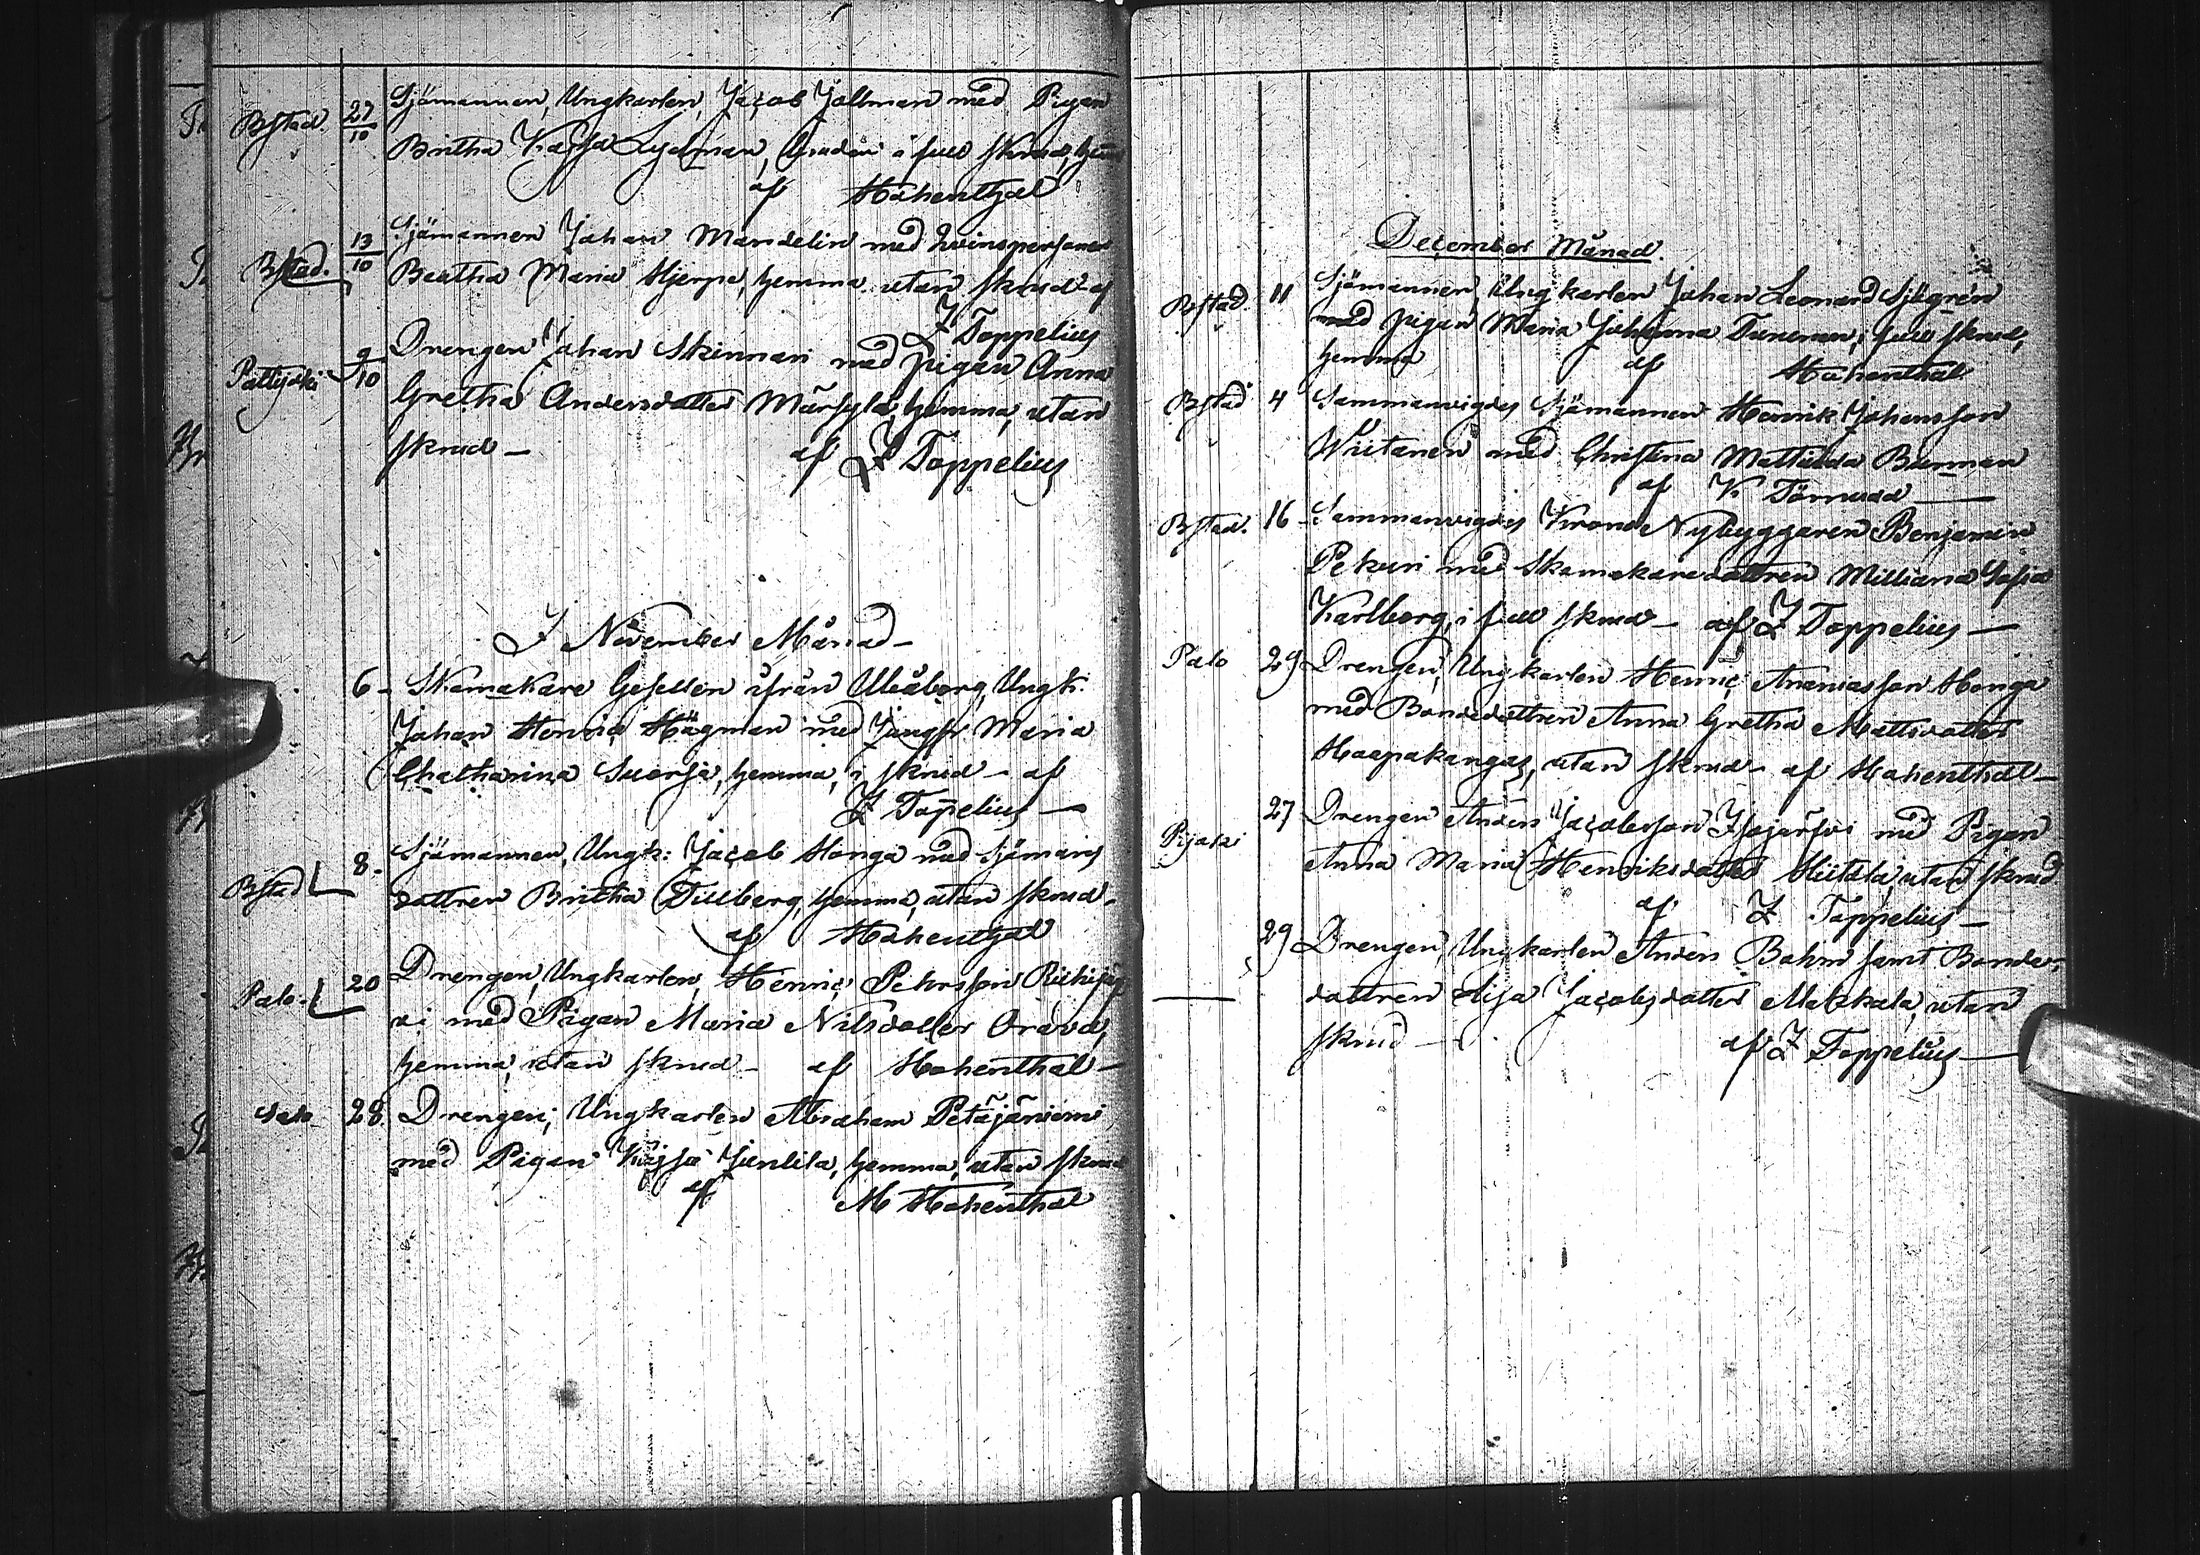 Bstad. 27/10 Sjömannen, Ungkarlen, Jacob Jallman med Pigan
Britha Kajsa Lydman, bruden i full skrud,
af Hohenthal
Bstad. 13/10 Sjömannen Johan Mandelin med Qvinspersonen
Beatha Maria Hjerpe, hemma utan skrud af
Z Toppelius
Pattijoki 9/10 Drengen Johan Skinnari med pigan Anna
Gretha Andersdotter Märsylä, hemma, utan
skrud – af Z Toppelius
I November Månad –
6 – Skomakare Gesellen ifrån Uleåborg, Ungk.
Johan Henric Högman med Jungfr Maria
Chatharina Suorsa, hemma, i skrud – af
Z Topelius –
Bstad 8 – Sjömannen, Ungk: Jacob Honga med Sjömans
dottren Britha Tillberg, hemma, utan skrud –
af Hohenthal
Palo – 20 Drengen, Ungkarlen, Henric Pehrsson Riihijär
vi med Pigan Maria Nilsdotter Orava,
hemma, utan skrud – af Hohenthal –
Salo – 28. Drengen, Ungkarlen Abraham Petäjäniemi
med Pigan Kajsa Juntila, hemma, utan skrud
af M Hohenthal
December Månad.
Bstad 11 Sjömannen, Ungkarlen Johan Leonard Sjögrén
med pigan Maria Johanna Tuneman, full skrud,
hemma af Hohenthal
Bstad 4 Sammanvigdes Sjömannen Henrik Johansson
Wiitanen med Christina Mathilda Burman
af K Törnudd –
Bstad. 16 – Sammanvigdes Krono Nybyggaren Benjamin
Pekuri med Skomakaredottren Milliana Sofia
Karlborg, i full skrud – af Z Toppelius –
Palo 29 Drengen, Ungkarlen Henric Ananiasson Honga
med Bondedottren Anna Gretha Mattsdotter
Haapakangas, utan skrud – af Hohenthal –
Pijaki 27 Drengen Anders Jacobsson Isojärvi med Pigan
Anna Maria Henriksdotter Hiitola, utan skrud
af Z Toppelius –
29 Drengen, Ungkarlen Anders Bahm samt Bonde-
dottren Lisa Jacobsdotter Matzkala, utan
skrud – af Z Toppelius –